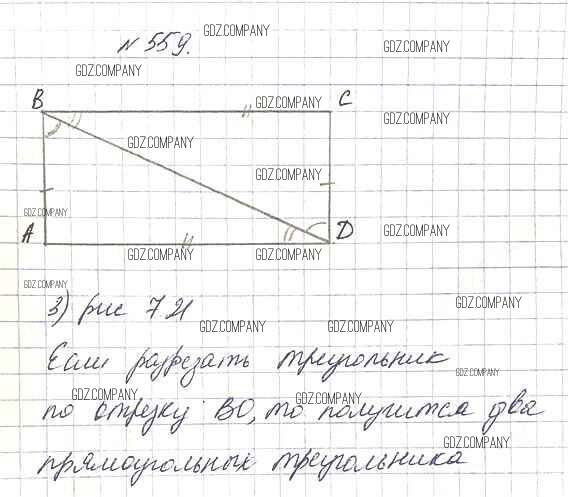 GDZ.COMPANY
N 559.
GDZ.COMPANY
GDZ.COMPANY
B GDZ.COMPANY C
GDZ.COMPANY
GDZ.COMPANY
GDZ.COMPANY
GDZ.COMPANY
A D GDZ.COMPANY
GDZ.COMPANY GDZ.COMPANY
GDZ.COMPANY
3) рис 7 21 GDZ.COMPANY
GDZ.COMPANY GDZ.COMPANY
Если разрезать треугольник
GDZ.COMPANY
GDZ.COMPANY GDZ.COMPANY
по отрезку BO, то получится два
GDZ.COMPANY
прямоугольных треугольника